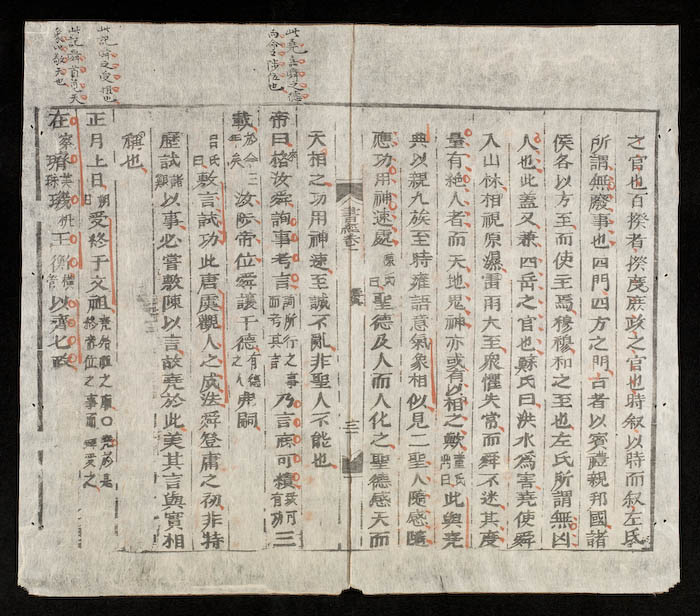 之官也百揆者揆度庶政之官也時叙以時而叙左氏
所謂無廢事也四門四方之門古者以賓禮親邦國諸
侯各以方至而使主焉穆穆和之至也左氏所謂無凶
人也此蓋又兼四岳之官也蘇氏曰洪水為害堯使舜
入山林相視原濕雷雨大至衆懼失常而舜不迷其度
量有絶人者而天地鬼神亦或有以相之歟董氏鼎曰此與堯
典以親九族至時雍語意氣象相似見二聖人隨感隨
應功用神速處陳氏曰聖德及人而人化之聖德感天而
書經卷一
三
天相之功用神速至誠不亂非聖人不能也
此堯嘉舜之德
而命之陟位也
帝曰格來汝舜詢事考言詢所行之事而考其言乃言底可績致可有功三
載於今三年矣汝陟帝位舜讓于德有德之人弗嗣
呂氏曰敷言試功此唐虞觀人之成法舜登庸之初非特
歷試諸艱以事必嘗敷陳以言故堯於此美其言與實相
稱也
此記舜之受禪也
正月上日朔日受終于文祖堯始祖之廟○堯於是終帝位之事而舜受之
在察璿美珠璣机玉衡橫管以齊七政